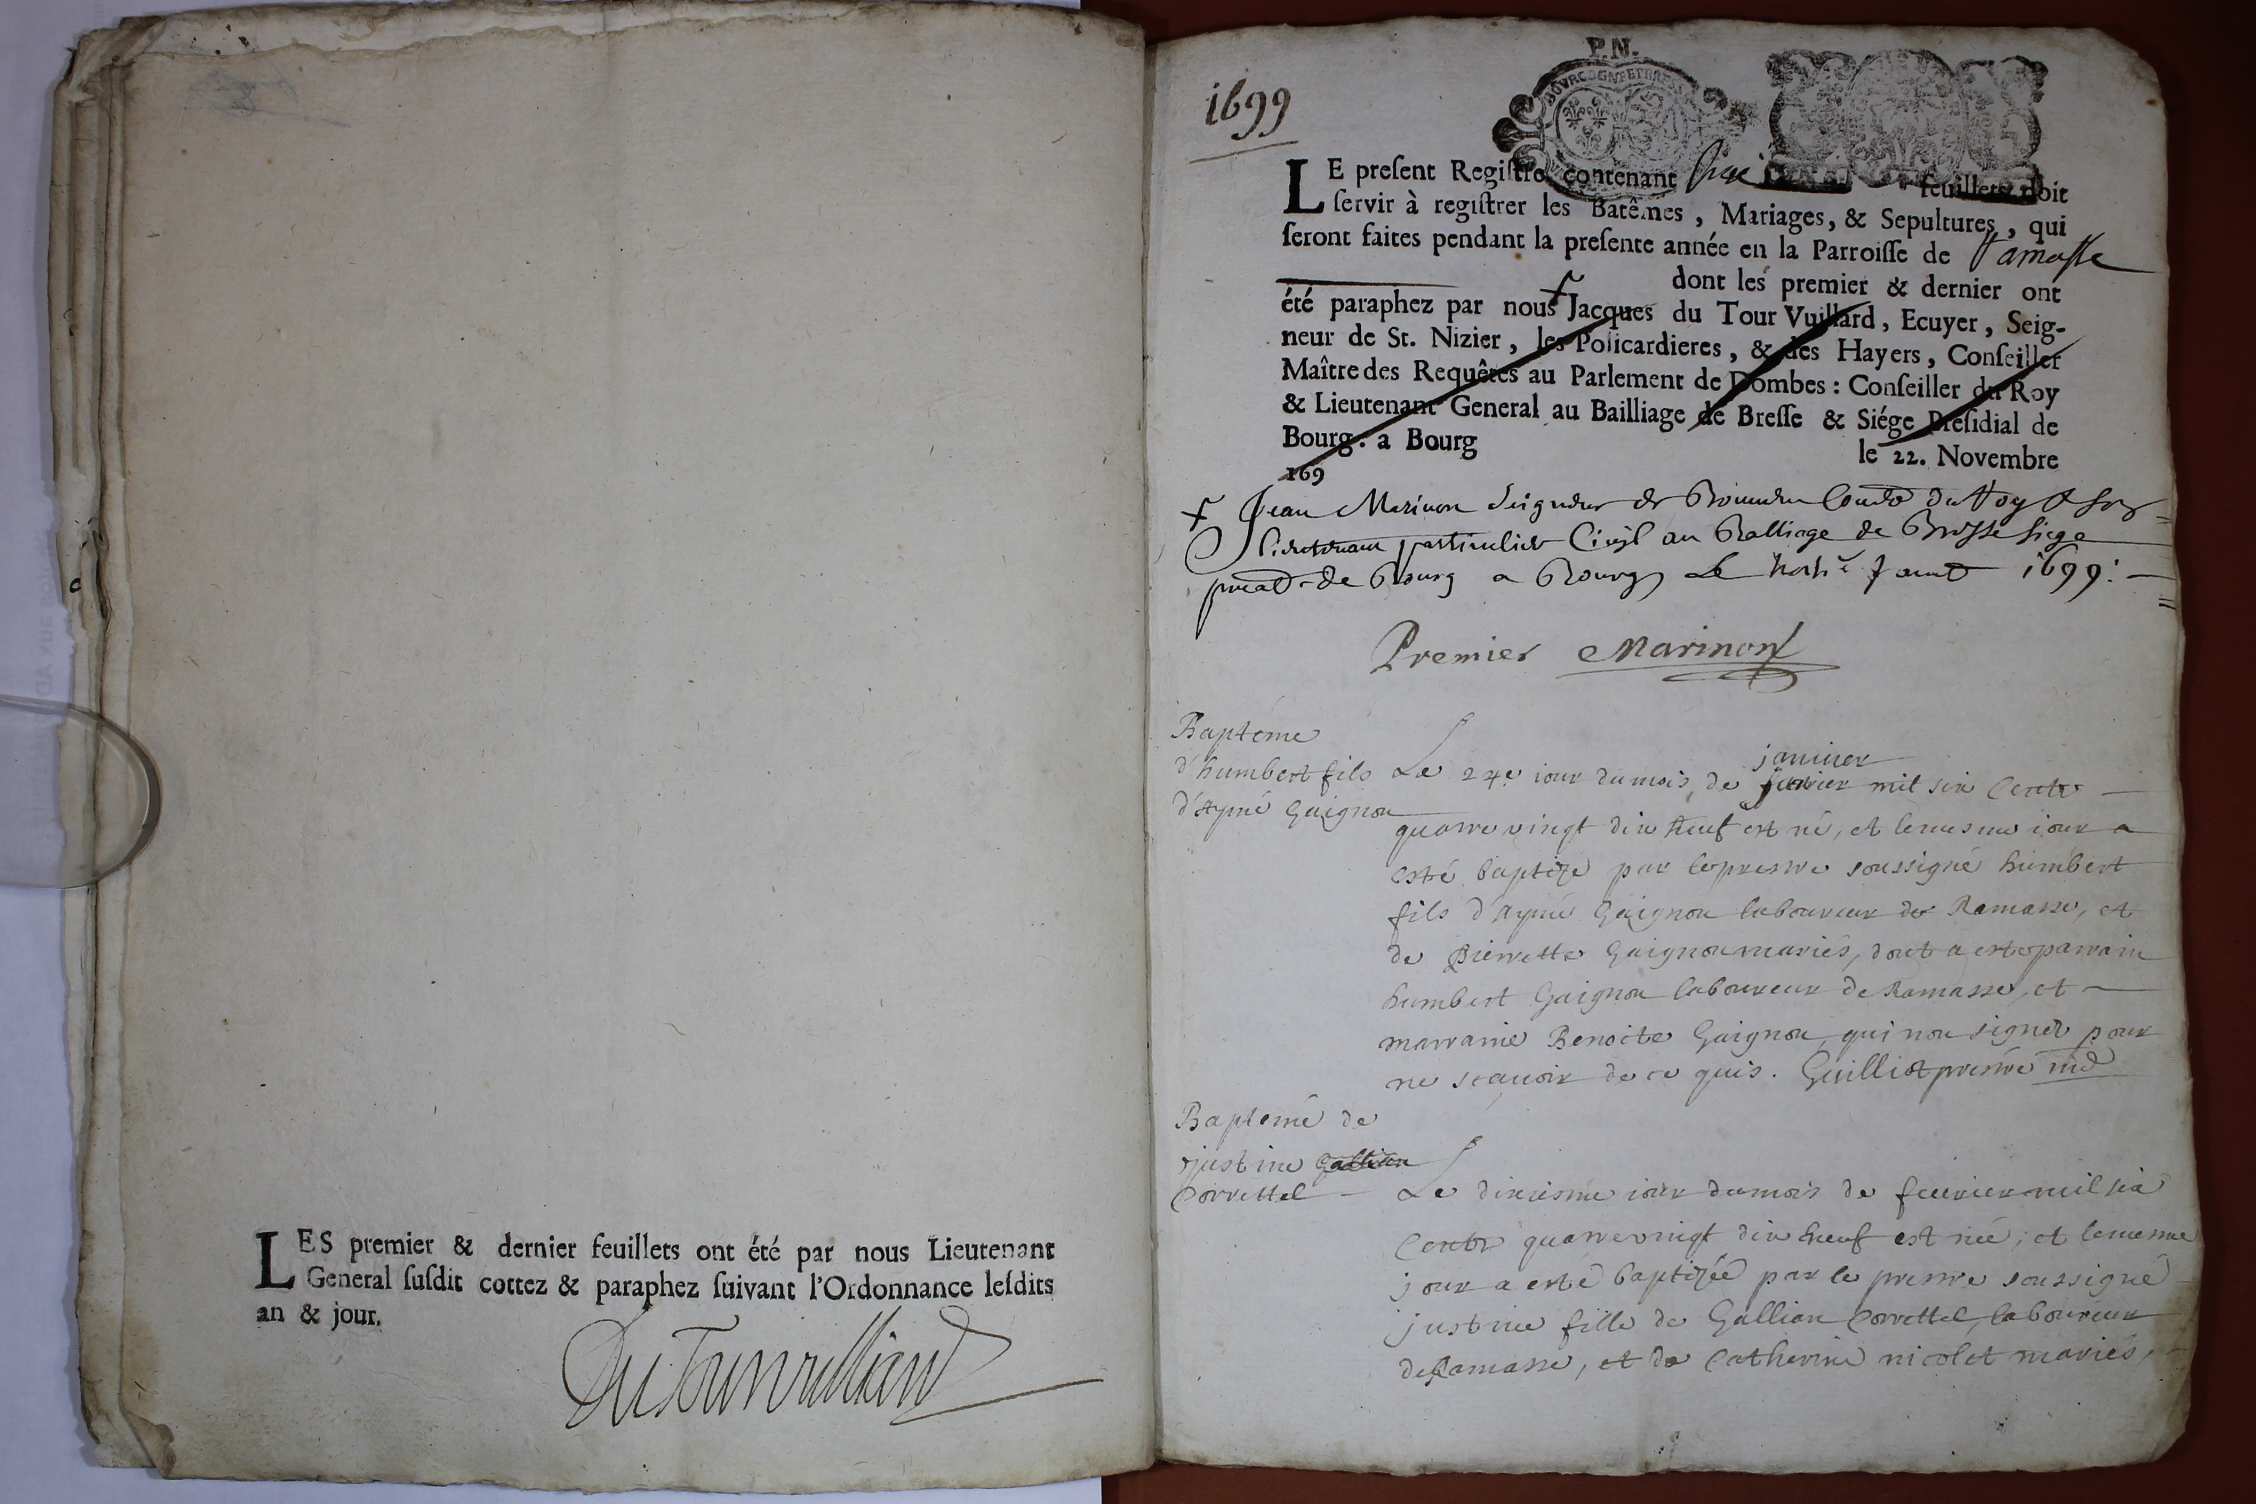 LES premier & dernier feuillets ont été par nous Lieutenant
General susdit cottez & paraphez suivant l'Ordonnance lesdits
an & jour.
DuTourvulliard
1699
P.N.
LE present Registre contenant feuillets doit
servir à registrer les Batêmes, Mariages, & Sepultures, qui
seront faites pendant la presente année en la Parroisse de Ramasse
dont les premier & dernier ont
été paraphez par nous Jacques du Tour Vuillard, Ecuyer, Seig-
neur de St. Nizier, les Policardieres, & des Hayers, Conseiller
Maître des Requêtes au Parlement de Dombes : Conseiller du Roy
& Lieutenant General au Bailliage de Bresse & Siége Presidial de
Bourg : a Bourg le 22. Novembre
169
Jean Marinon Seigneur de du Roy
Lieutenant particulier Civil au Balliage de Bresse siege
de Bourg a Bourg Le 1699 :
Premier Marinon
Baptéme
d'humbert fils
d'Aymé Guignon
janvier
Le 24e iour du mois de mil six Cents
quatre vingt dix neuf est né, et le mesme iour a
esté baptizé par le prestre soussigné humbert
fils d'Aymé Guignon laboureur de Ramasse, et
de Pierrette Guignon mariés, dont a esté parrain
humbert Guignon laboureur de Ramasse, et
marraine Benoite Guignon, qui non signés pour
ne scavoir de ce quis. Guilliot prestre
Baptéme de
justine
Correttel
Le dixiesme iour du mois de feuvrier mil six
Cents quatre vingt dix neuf est née, et le mesme
jour a esté baptizée par le prestre soussigné
justine fille de Gallian Correttel, laboureur
de Ramasse, et de Catherine nicolet mariés,